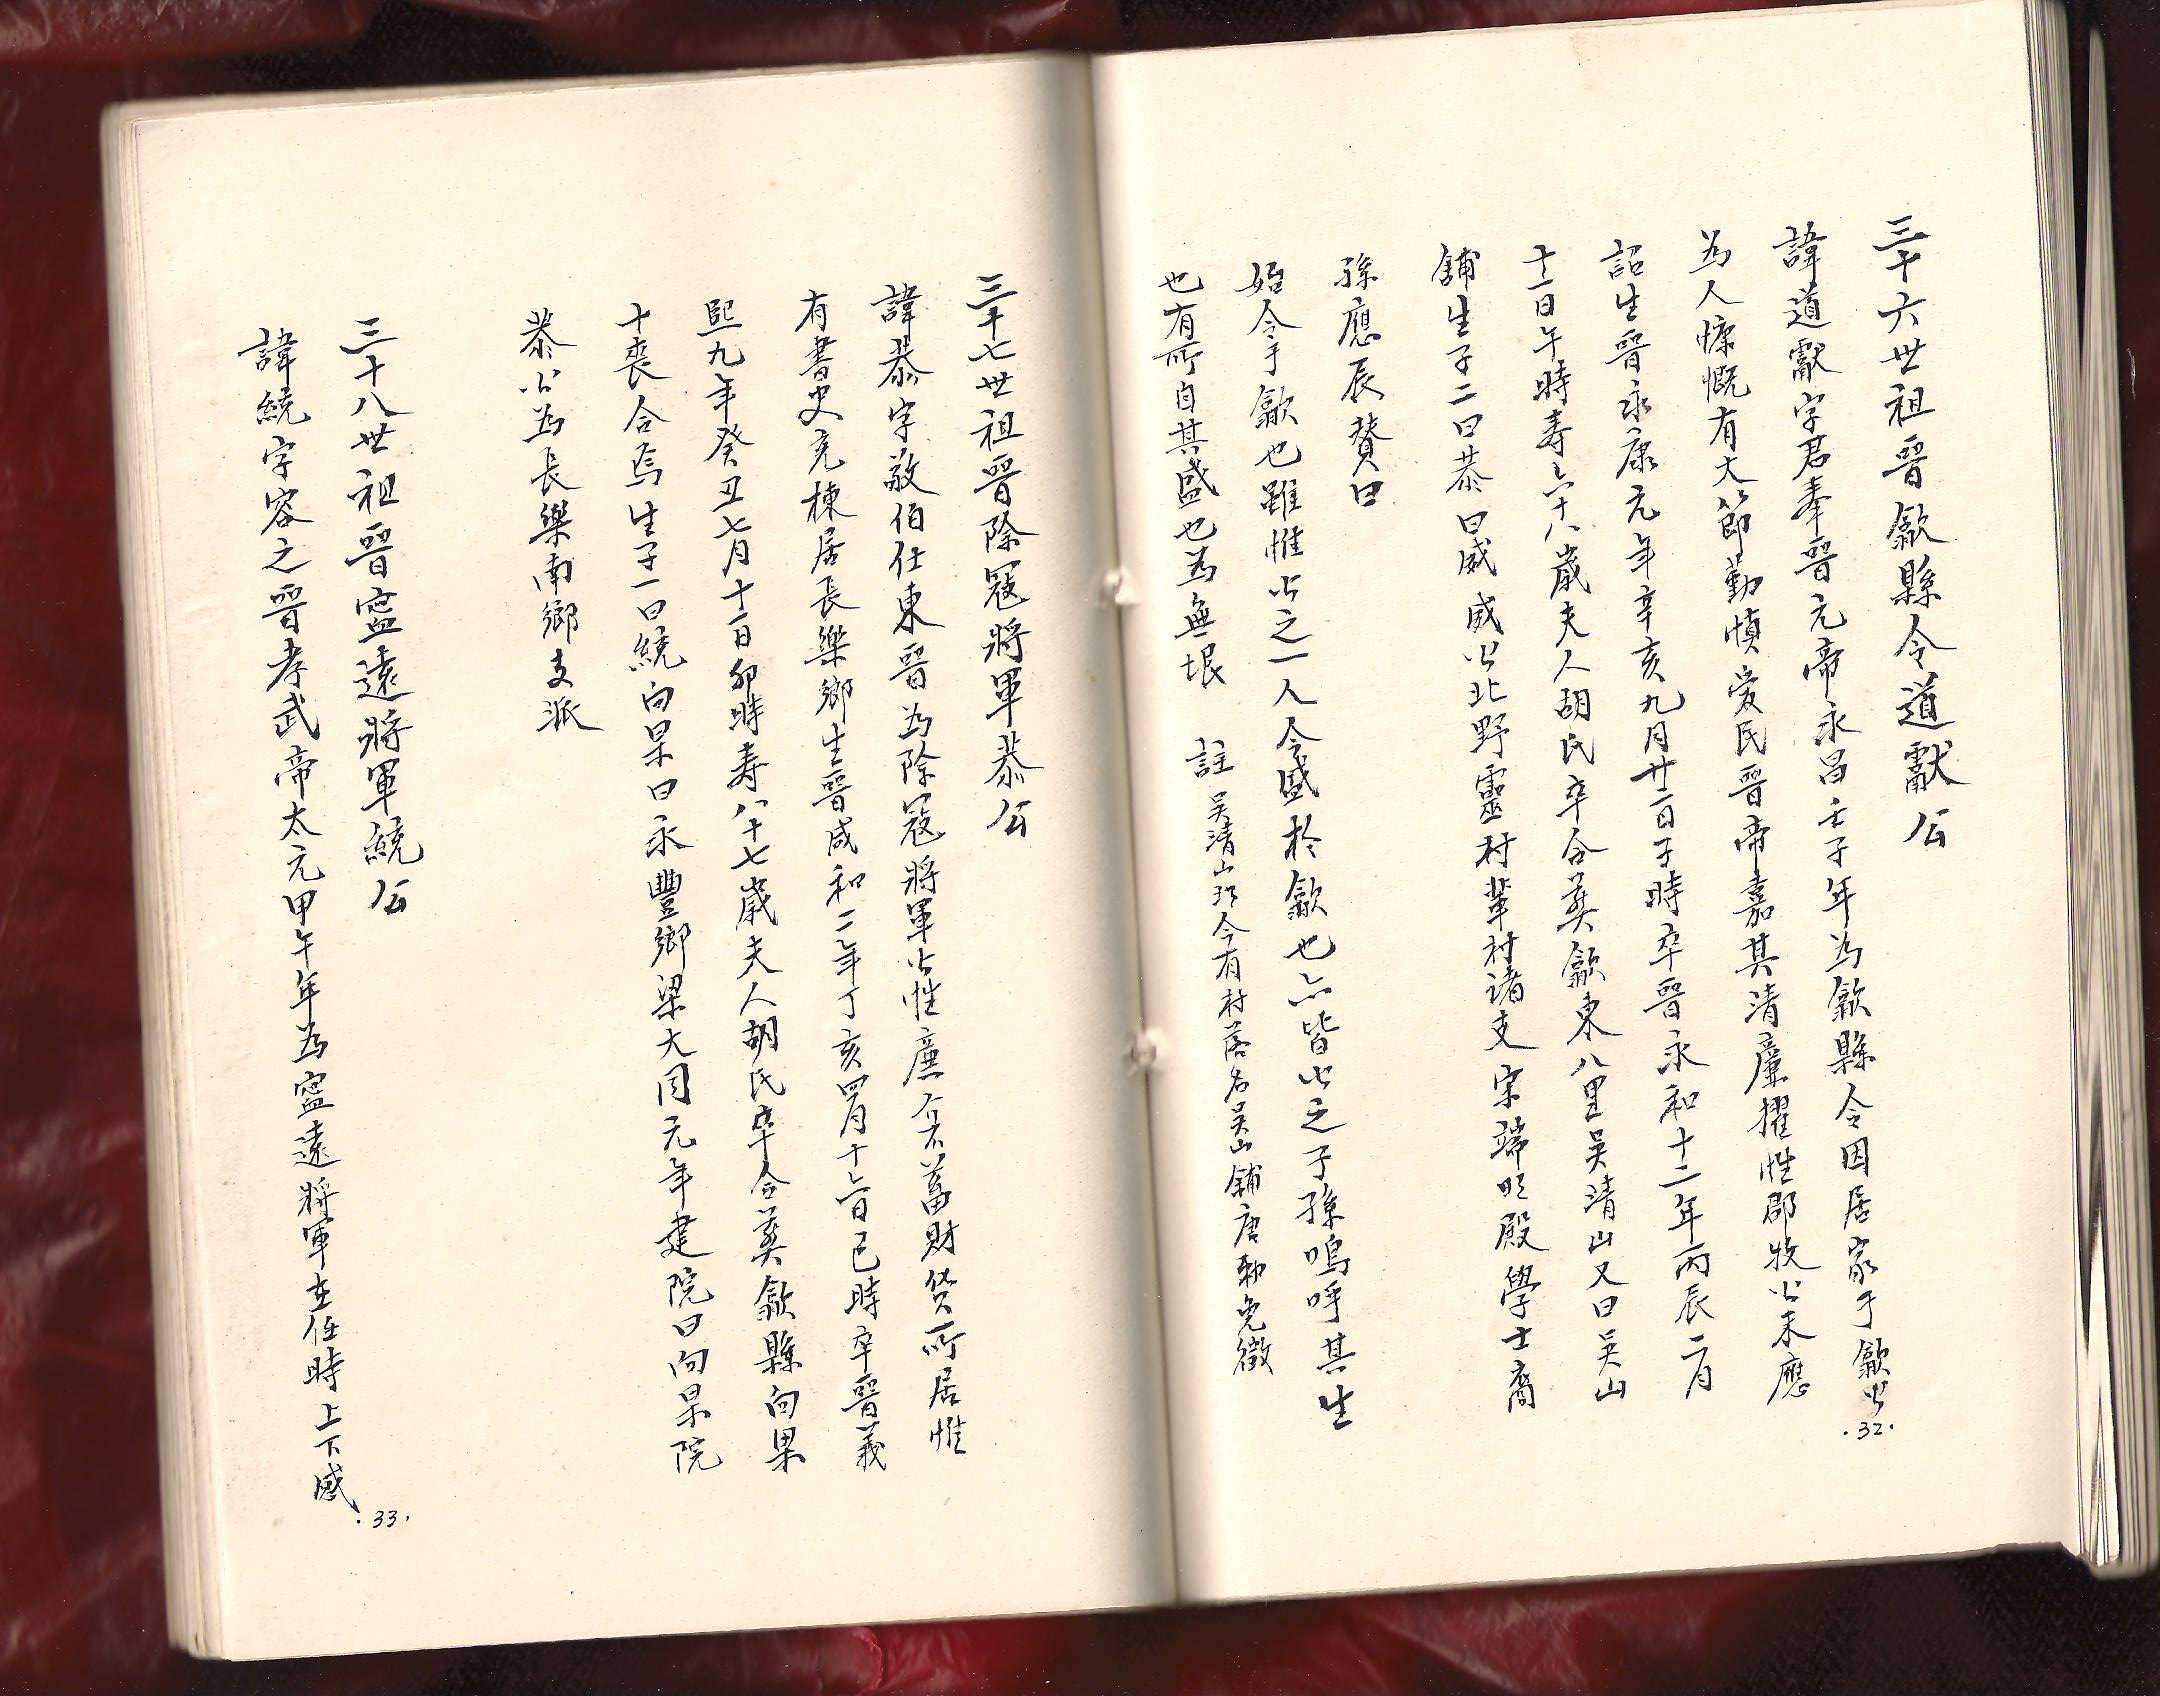 三十六世祖晉歙縣令道獻公
諱道獻字君奉晉元帝永昌壬子年為歙縣令因居家于歙公
為人慷慨有大節勤慎愛民晉帝嘉其清廉擢牲郡牧公未應
詔生晉永康元年辛亥九月廿二日子時卒晉永和十二年丙辰二月
十二日午時寿六十八歲夫人胡氏卒合葬歙東八里吴清山又曰吴山
舖生子二曰恭曰威威公北野靈村輩村諸支宋端明殿學士裔
孫應辰贊曰
始令于歙也雖惟公之一人今盛於歙也亦皆公之子孫嗚呼其生
也有所自其盛也為無垠 註吴清山jy今有村落名吴山舖唐勅免徵
·32·
三十七世祖晉除寇將軍恭公
諱恭字敬伯仕東晉為除寇將軍公性廉介不蓄財貨所居惟
有書史充棟居長樂鄉生晉咸和二年丁亥四月十六日巳時卒晉義
熙九年癸丑七月十二日卯時寿八十七歲夫人胡氏卒合葬歙縣向杲院
十喪合焉生子一曰統向杲曰永豐鄉梁大同元年建院曰向杲院
恭公為長樂南鄉支派
三十八世祖晉寧遠將軍統公
諱統字容之晉孝武帝太元甲午年為寧遠將軍在任時上下感
·33·